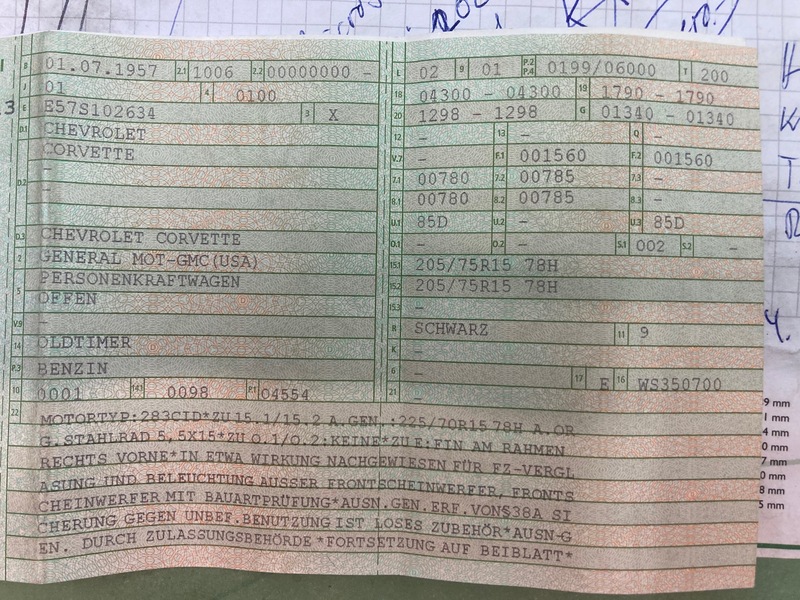 B 01.07.1957 2.1 1006 2.2 00000000 -
J 01 4 0100
E E57S102634 3 X
D.1 CHEVROLET
CORVETTE
-
D.2 -
-
D.3 CHEVROLET CORVETTE
2 GENERAL MOT-GMC(USA)
5 PERSONENKRAFTWAGEN
OFFEN
V.9 -
14 OLDTIMER
P.3 BENZIN
10 0001 14.1 0098 P.1 04554
L 02 9 01 P.2 P.4 0199/06000 T 200
18 04300 - 04300 19 1790 - 1790
20 1298 - 1298 G 01340 - 01340
12 - 13 - Q -
V.7 - F.1 001560 F.2 001560
7.1 00780 7.2 00785 7.3 -
8.1 00780 8.2 00785 8.3 -
U.1 85D U.2 - U.3 85D
O.1 - O.2 - S.1 002 S.2 -
15.1 205/75R15 78H
15.2 205/75R15 78H
15.3 -
R SCHWARZ 11 9
K -
6 - 17 E 16 WS350700
21 -
22 MOTORTYP:283CID*ZU 15.1/15.2 A.GEN.:225/70R15 78H A.OR
G.STAHLRAD 5,5X15*ZU O.1/O.2:KEINE*ZU E:FIN AM RAHMEN
RECHTS VORNE*IN ETWA WIRKUNG NACHGEWIESEN FÜR FZ-VERGL
ASUNG UND BELEUCHTUNG AUSSER FRONTSCHEINWERFER, FRONTS
CHEINWERFER MIT BAUARTPRÜFUNG*AUSN.GEN.ERF.VON§38A SI
CHERUNG GEGEN UNBEF.BENUTZUNG IST LOSES ZUBEHÖR*AUSN-G
EN. DURCH ZULASSUNGSBEHÖRDE*FORTSETZUNG AUF BEIBLATT*
9 mm
1 mm
4 mm
0 mm
7 mm
0 mm
8 mm
5 mm